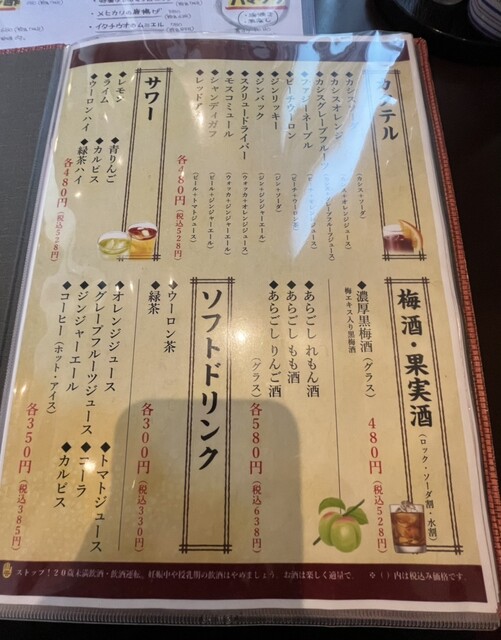 ・メヒカリの唐揚げ
・イタチウオのムニエル
カクテル
◆カシスオレンジ
◆カシスグレープフルーツ
◆ファジーネーブル
◆ピーチウーロン
◆ジンリッキー
◆ジンバック
◆スクリュードライバー
◆モスコミュール
◆シャンディガフ
◆レッドアイ
(カシス+ソーダ)
(ピーチ+ウーロン茶)
(ジン+ソーダ)
(ジン+ジンジャーエール)
(ウォッカ+オレンジジュース)
(ウォッカ+ジンジャーエール)
(ビール+ジンジャーエール)
(ビール+トマトジュース)
各480円(税込528円)
サワー
◆レモン
◆ライム
◆ウーロンハイ
◆青りんご
◆カルピス
◆緑茶ハイ
各480円(税込528円)
梅酒・果実酒
(ロック・ソーダ割・水割)
◆濃厚黒梅酒(グラス)
梅エキス入り黒梅酒
480円(税込528円)
◆あらごし れもん酒
◆あらごし もも酒
◆あらごし りんご酒
(グラス)
各580円(税込638円)
ソフトドリンク
◆ウーロン茶
◆緑茶
各300円(税込330円)
◆オレンジジュース
◆グレープフルーツジュース
◆ジンジャーエール
◆コーヒー(ホット・アイス)
◆トマトジュース
◆コーラ
◆カルピス
各350円(税込385円)
ストップ!20歳未満飲酒・飲酒運転。妊娠中や授乳期の飲酒はやめましょう。お酒は楽しく適量で。 ※( )内は税込み価格です。